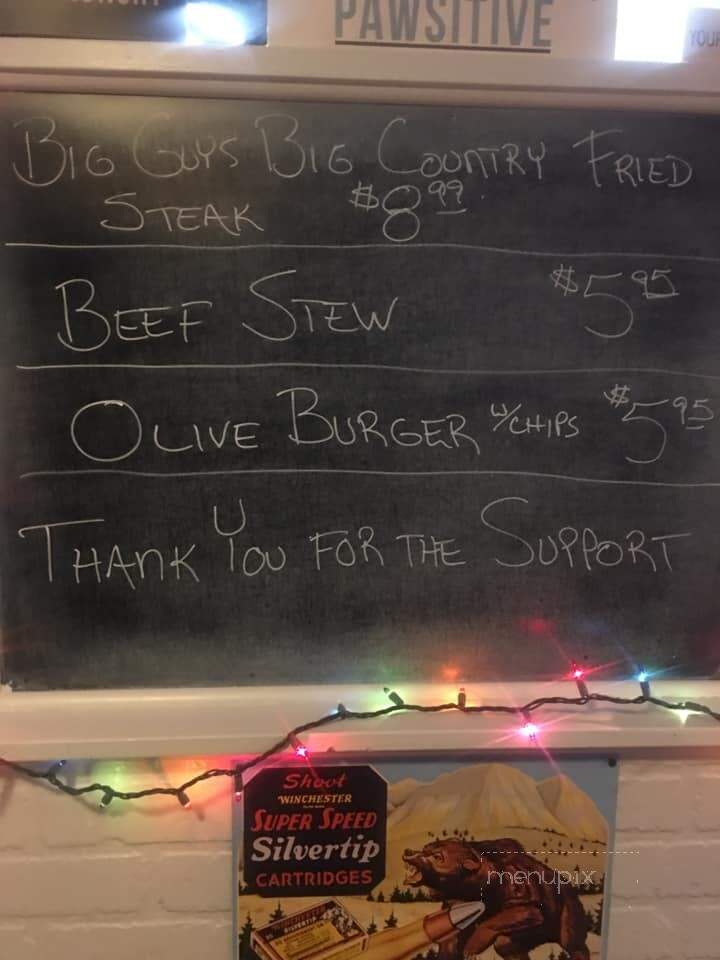 PAWSITIVE
YOUR
BIG GUYS BIG COUNTRY FRIED
STEAK $8.99
BEEF STEW $5.95
OLIVE BURGER W/CHIPS $5.95
THANK YOU FOR THE SUPPORT
Shoot
WINCHESTER
SUPER SPEED
Silvertip
CARTRIDGES
WINCHESTER
SILVERTIP
menupix